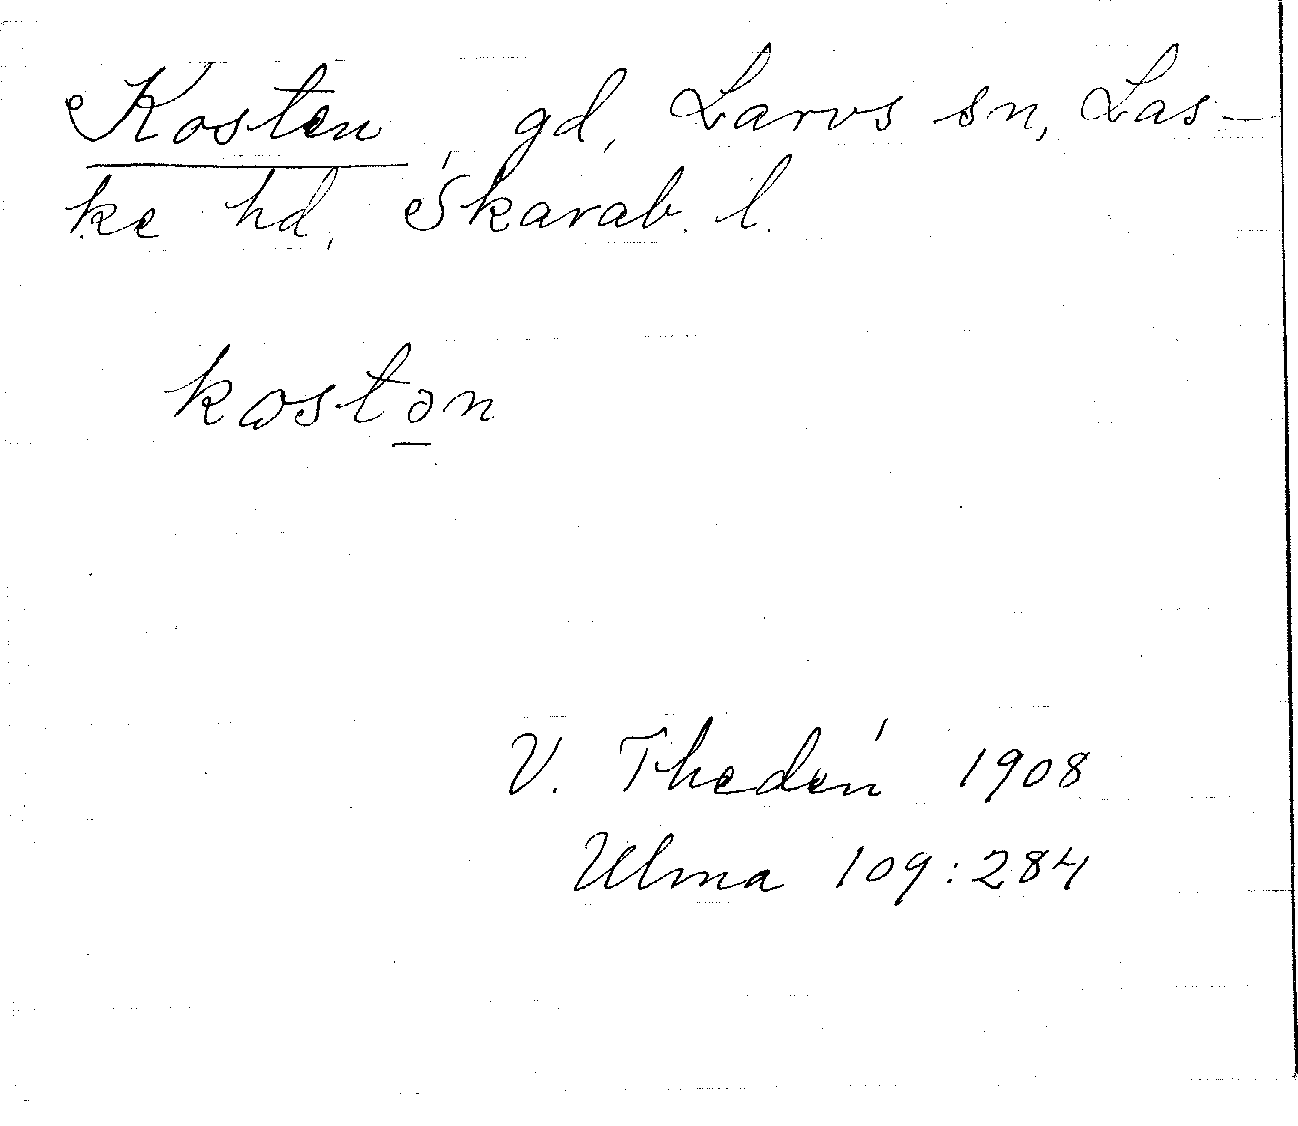 Kosten, gd, Larvs sn, Las-
ke hd, Skarab. l.
kɷstə̲n
V. Thedén 1908
Ulma 109:284